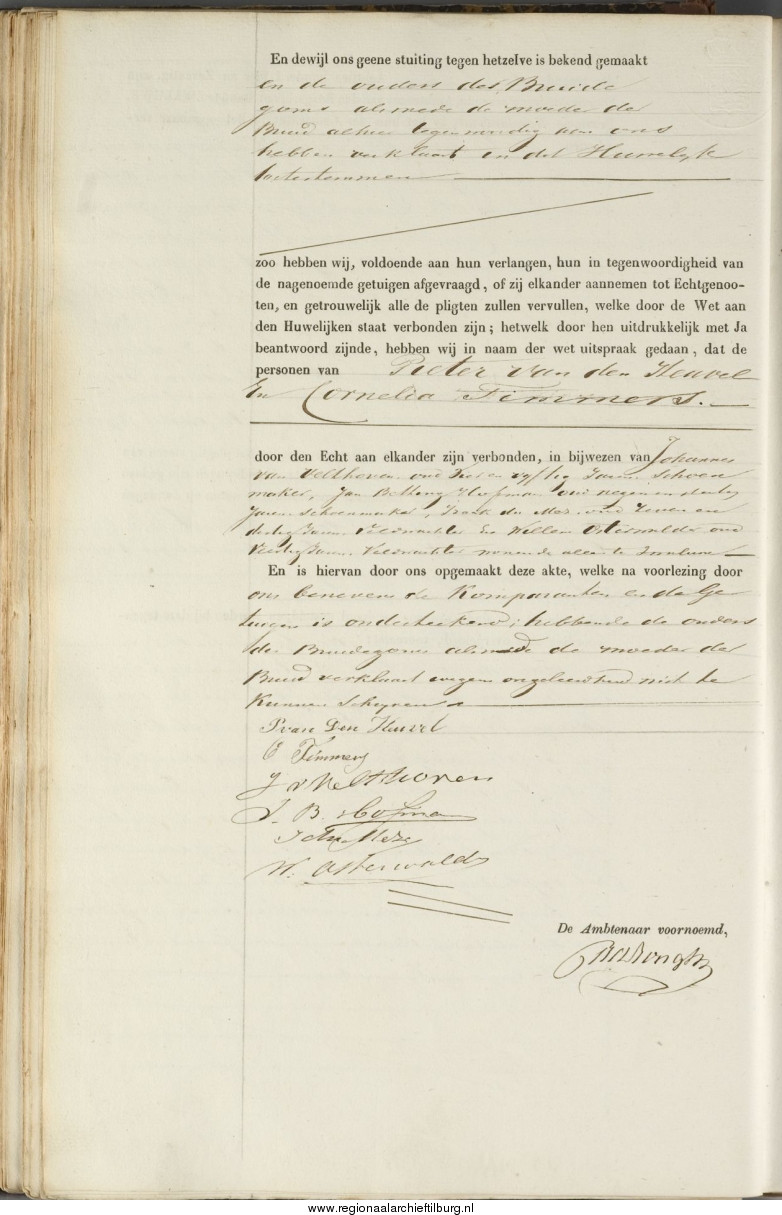 En dewijl ons geene stuiting tegen hetzelve is bekend gemaakt
en de ouders des Bruide
goms alsmede de moeder der
Bruid alhier tegenwoordig aan ons
hebben verklaart in dit Huwelyk
toetestemmen
zoo hebben wij, voldoende aan hun verlangen, hun in tegenwoordigheid van
de nagenoemde getuigen afgevraagd, of zij elkander aannemen tot Echtgenoo-
ten, en getrouwelijk alle de pligten zullen vervullen, welke door de Wet aan
den Huwelijken staat verbonden zijn; hetwelk door hen uitdrukkelijk met Ja
beantwoord zijnde, hebben wij in naam der wet uitspraak gedaan, dat de
personen van Pieter van den Heuvel
En Cornelia Timmers.
door den Echt aan elkander zijn verbonden, in bijwezen van Johannes
van Velthoven oud en vyftig Jaren Schoen
maker, Jan Hofman oud negen en dertig
Jaren Schoenmaker, oud Zeven en
dertig Jaren Veldwachter En Willem Osterwalds oud
Veertig Jaren Veldwachter wonende allen te
En is hiervan door ons opgemaakt deze akte, welke na voorlezing door
ons benevens de Komparanten en de Ge
tuigen is onderteekend; hebbende de ouders
des Bruidegoms alsmede de moeder der
Bruid verklaart wegens ongeleerdheid niet te
Kunnen Schryven
P van Den Heuvel
C Timmers
J v Velthoven
J. B. Hofman
W. Osterwalds
De Ambtenaar voornoemd,
www.regionaalarchieftilburg.nl